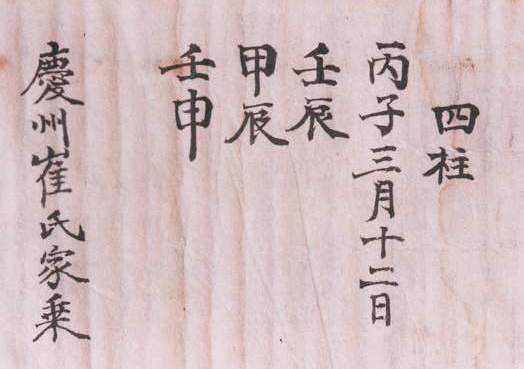 四柱
丙子三月十二日
壬辰
甲辰
壬申
慶州崔氏家乗